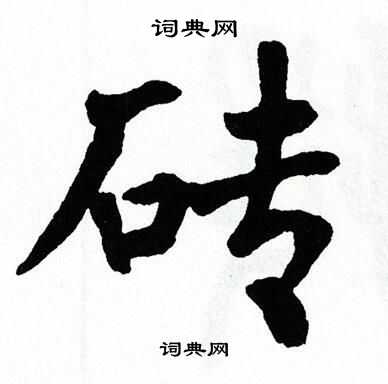 词典网
砖
词典网